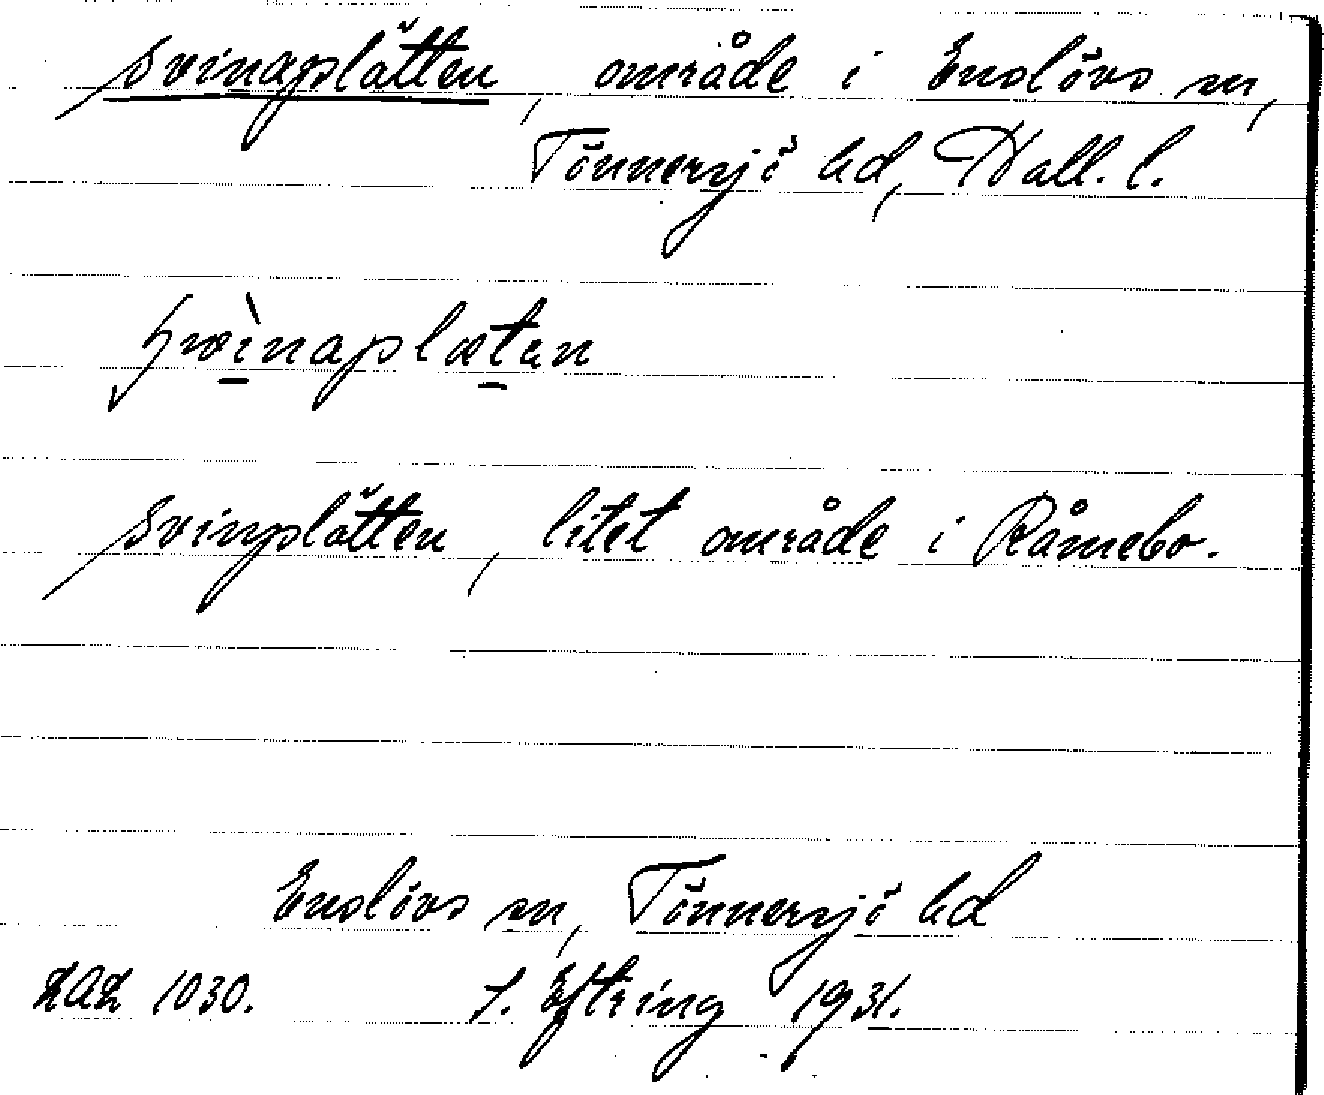 svinaplätten, område i Enslövs sn,
Tönnersjö hd, Hall. l.
svinplätten, litet område i Råmebo.
Enslövs sn, Tönnersjö hd
LAL 1030. J. Eftring 1931.